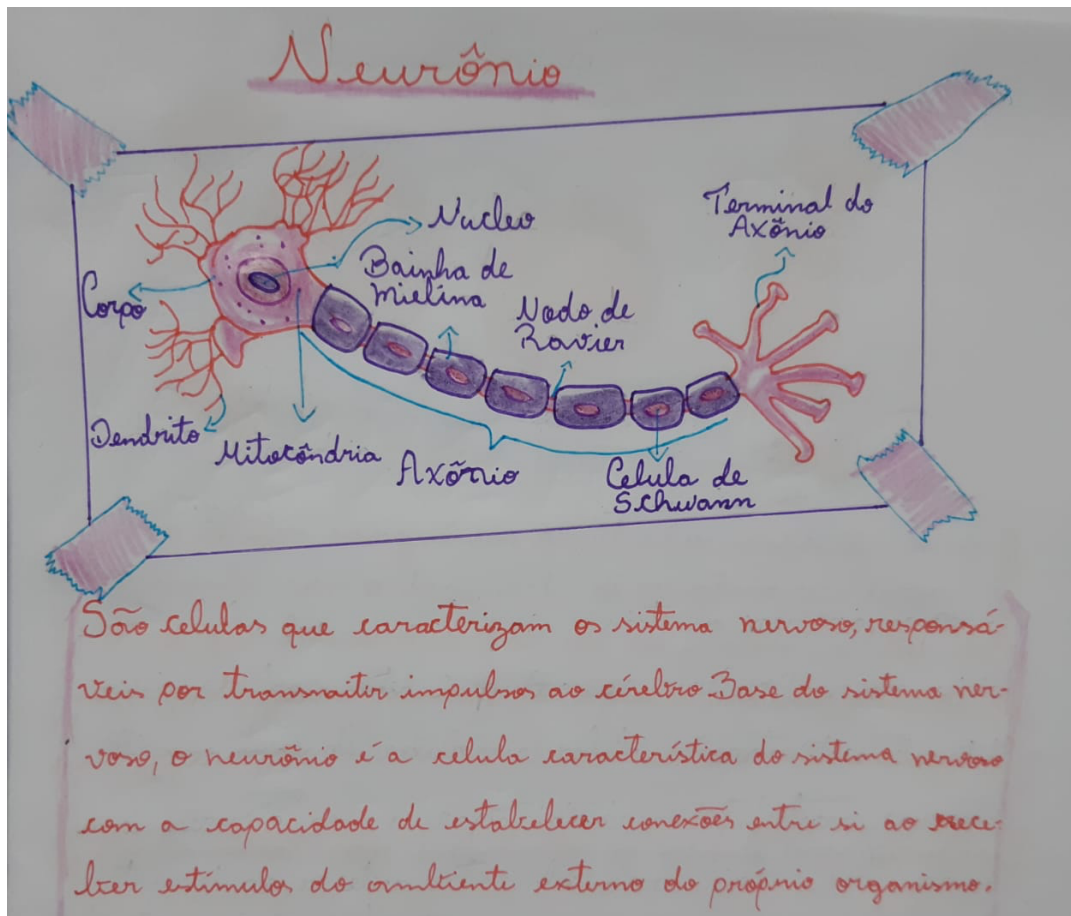 Neurônio
Nucleo
Terminal do
Axônio
Bainha de
Mielina
Corpo
Nodo de
Ravier
Dendrito
Mitocôndria
Axônio
Celula de
Schwann
São celulas que caracterizam os sistema nervoso, responsá-
veis por transmitir impulsos ao cérebro Base do sistema ner-
voso, o neurônio é a celula característica do sistema nervoso
com a capacidade de estabelecer conexões entre si ao rece-
ber estímulos do ambiente externo do próprio organismo.